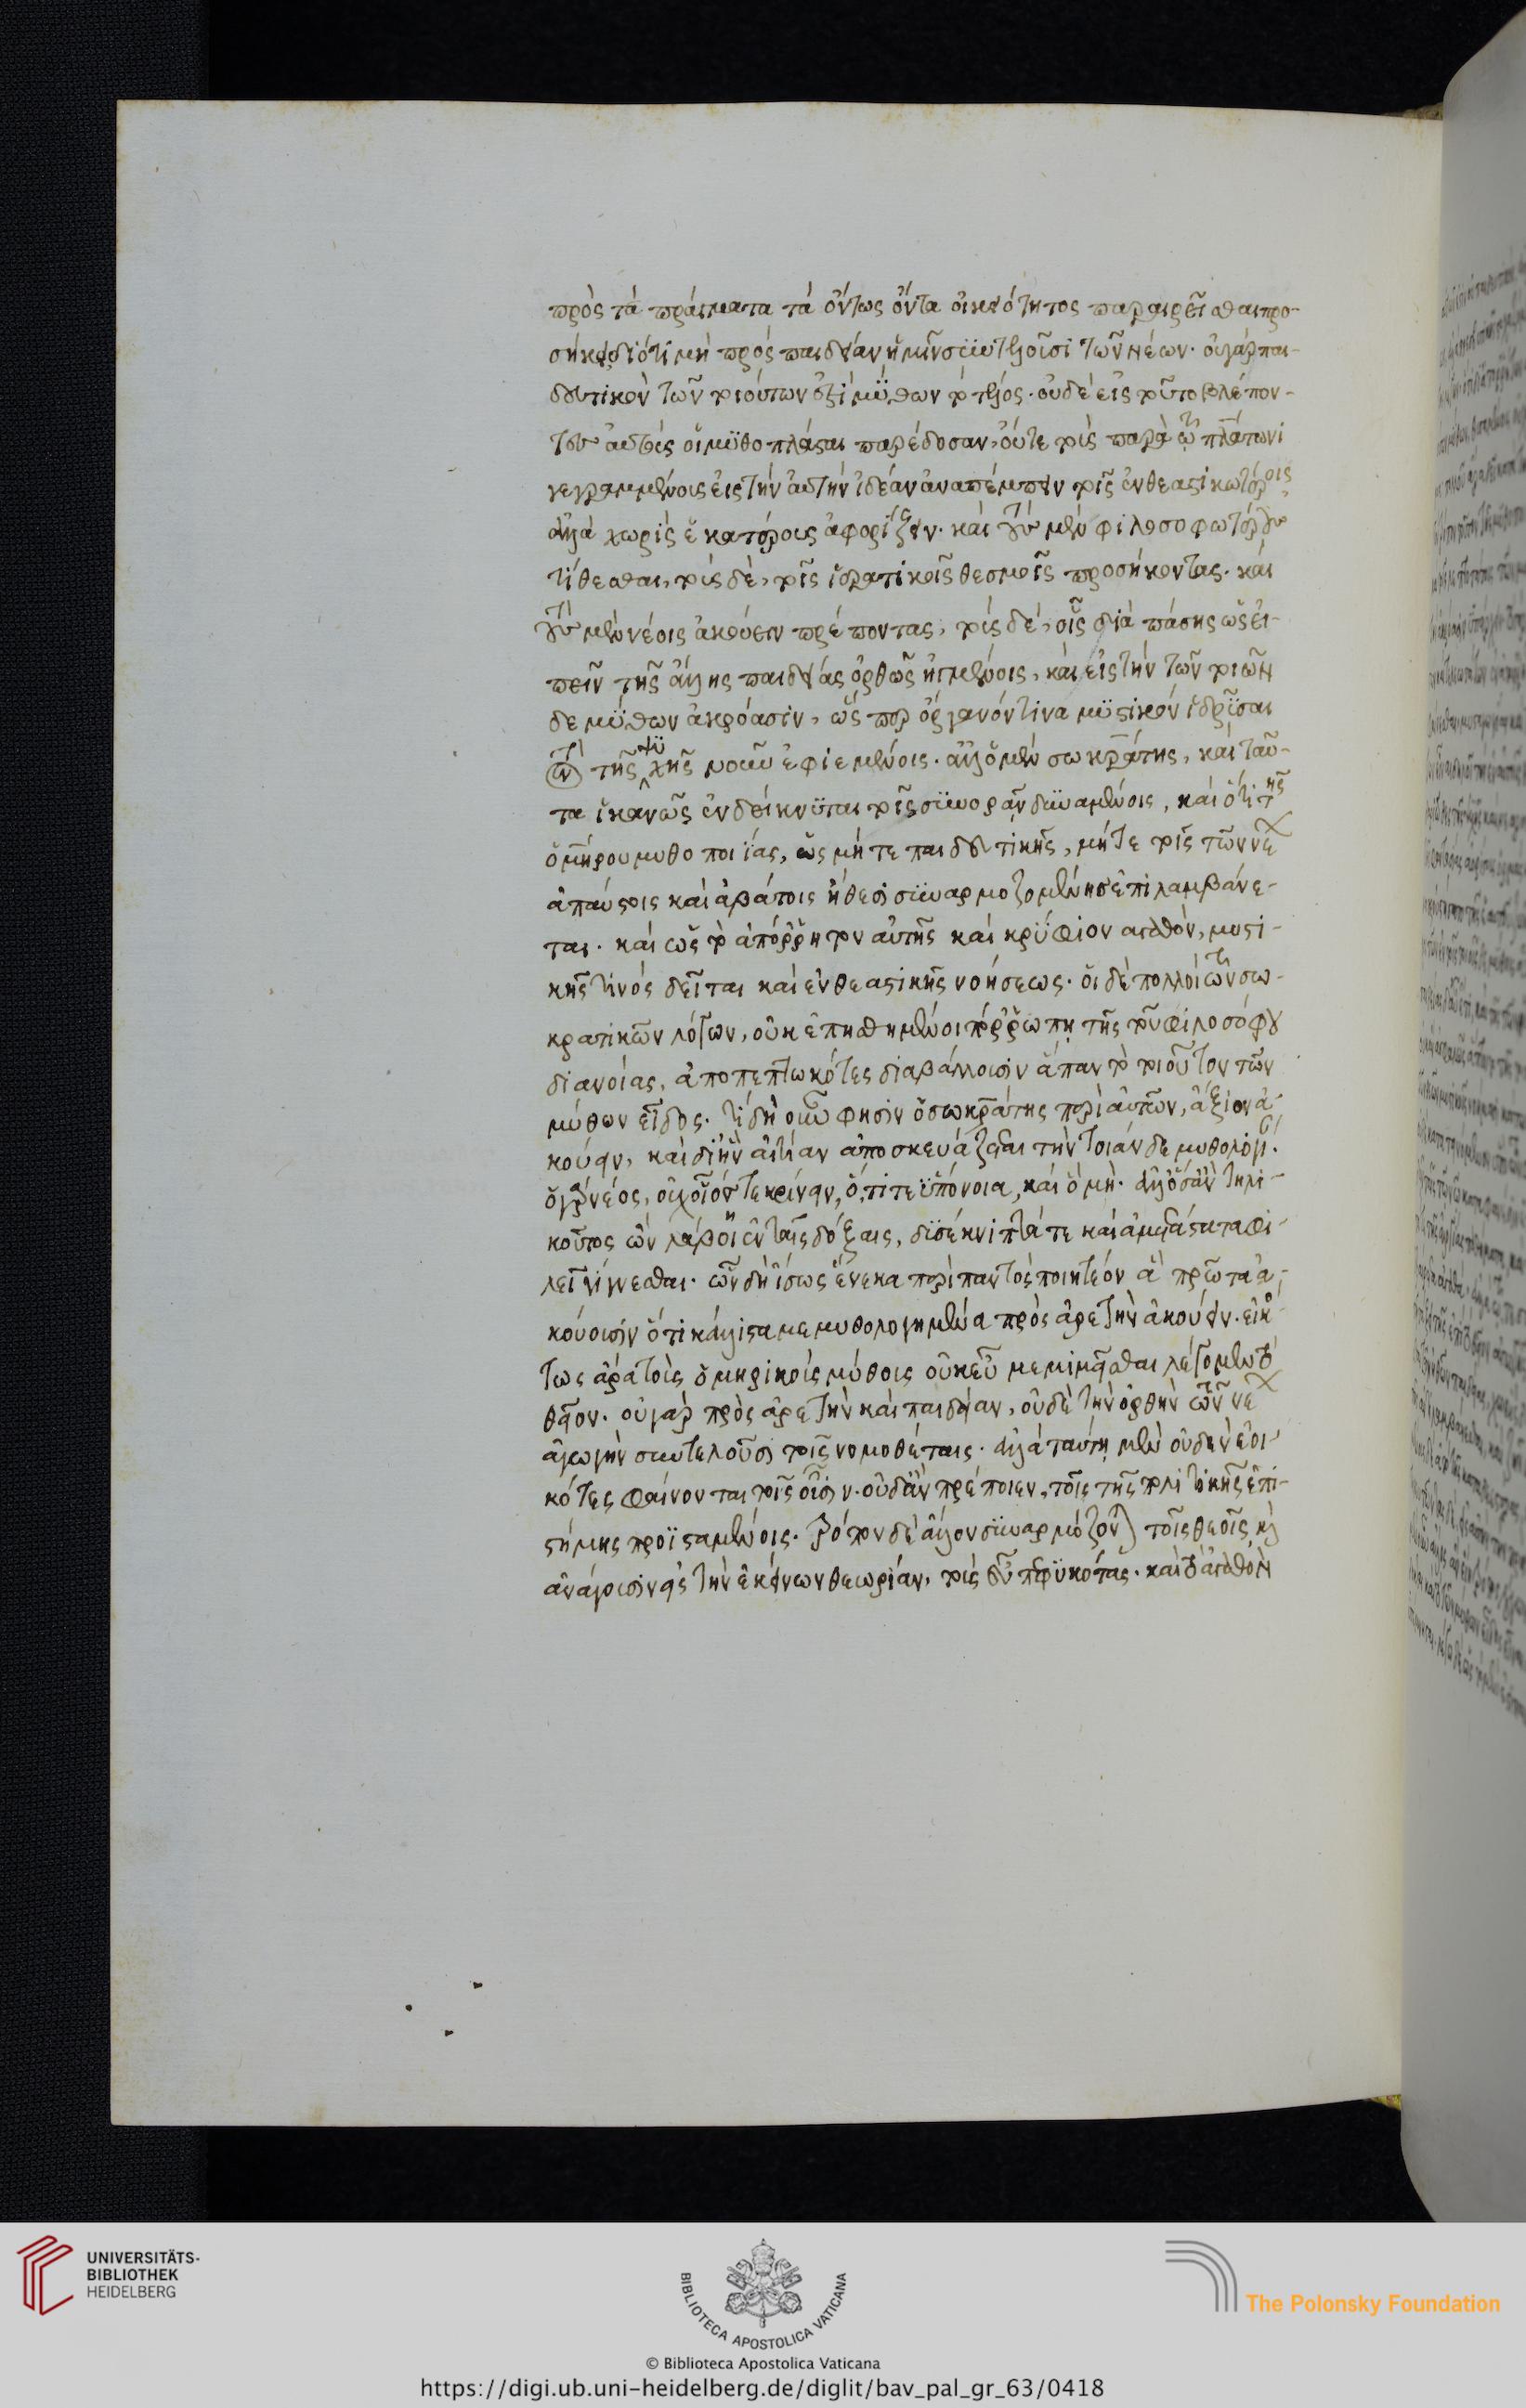 πρὸς τὰ πράγματα τὰ ὄντως ὄντα οἰκειότητος παραιρεῖσθαι προ-
σήκει, διότι μὴ πρὸς παιδείαν ἡμῖν συντελοῦσι τῶν νέων. οὐ γὰρ παι-
δευτικὸν τῶν τοιούτων ἐστὶ μύθων τὸ τέλος. οὐδὲ εἰς τοῦτο βλέπον-
τες αὐτοὺς οἱ μυθοπλάσται παρέδοσαν, οὔτε τοὺς παρὰ τῷ πλάτωνι
γεγραμμένους εἰς τὴν αὐτὴν ἰδέαν ἀναπέμπειν τοῖς ἐνθεαστικωτέροις,
ἀλλὰ χωρὶς ἑκατέρους ἀφορίζειν. καὶ τοὺς μὲν φιλοσοφωτέρους
τίθεσθαι, τοὺς δὲ, τοῖς ἱερατικοῖς θεσμοῖς προσήκοντας. καὶ
τοὺς μὲν νέοις ἀκούειν πρέποντας, τοὺς δὲ, τοῖς διὰ πάσης ὡς εἰ-
πεῖν τῆς ἄλλης παιδείας ὀρθῶς ἠγμένοις, καὶ εἰς τὴν τῶν τοιῶν
δε μύθων ἀκρόασιν, ὥσπερ ὄργανόν τινα μυστικὸν ἱδρῦσαι
τὸν τῆς ψυχῆς νοῦν ἐφιεμένοις. ἀλλ' ὁ μὲν σωκράτης, καὶ ταῦ-
τα ἱκανῶς ἐνδείκνυται τοῖς συνορᾶν δυναμένοις, καὶ ὅτι τῆς
ὁμήρου μυθοποιΐας, ὡς μήτε παιδευτικῆς, μήτε τοῖς τῶν νέων
ἀπλάστοις καὶ ἀβάτοις ἤθεσι συναρμοζομένης ἐπιλαμβάνε-
ται. καὶ ὡς τὸ ἀπόρρητον αὐτῆς καὶ κρύφιον ἀγαθὸν, μυστι-
κῆς τινὸς δεῖται καὶ ἐνθεαστικῆς νοήσεως. οἱ δὲ πολλοὶ τῶν σω-
κρατικῶν λόγων, οὐκ ἐπῃσθημένοι πόρρω πῃ τῆς τοῦ φιλοσόφου
διανοίας, ἀποπεπτωκότες διαβάλλουσιν ἅπαν τὸ τοιοῦτον τῶν
μύθων εἶδος. τί δὴ οὖν φησὶν ὁ σωκράτης περὶ αὐτῶν, ἄξιον ἀ-
κούειν, καὶ δι' ἣν αἰτίαν ἀποσκευάζεται τὴν τοιάνδε μυθολογί.
ὁ γὰρ νέος, οὐχ οἷόν τε κρίνειν, ὅ,τι τε ὑπόνοια, καὶ ὃ μὴ. ἀλλ' ὃ ἂν τηλι-
κοῦτος ὢν λάβοι ἐν ταῖς δόξαις, δυσέκνιπτά τε καὶ ἀμετάστατα φι-
λεῖ γίγνεσθαι. ὧν δὴ ἴσως ἕνεκα περὶ παντὸς ποιητέον ἃ πρῶτα ἀ-
κούουσιν ὅτι κάλλιστα μεμυθολογημένα πρὸς ἀρετὴν ἀκούειν. εἰκό-
τως ἄρα τοὺς ὁμηρικοὺς μύθους οὐκ εὖ μεμιμῆσθαι λέγομεν τὸ
θεῖον. οὐ γὰρ πρὸς ἀρετὴν καὶ παιδείαν, οὐδὲ τὴν ὀρθὴν τῶν νέων
ἀγωγὴν συντελοῦσι τοῖς νομοθέταις. ἀλλὰ ταύτῃ μὲν οὐδὲν ἐοι-
κότες φαίνονται τοῖς οὖσιν. οὐδ' ἂν πρέποιεν, τοῖς τῆς πολιτικῆς ἐπι-
στήμης προϊσταμένοις. τρόπον δὲ ἄλλον συναρμόζονται τοῖς θεοῖς καὶ
ἀνάγουσιν εἰς τὴν ἐκείνων θεωρίαν, τοὺς εὖ πεφυκότας. καὶ τὸ ἀγαθὸν
UNIVERSITÄTS-
BIBLIOTHEK
HEIDELBERG
BIBLIOTECA APOSTOLICA VATICANA
The Polonsky Foundation
© Biblioteca Apostolica Vaticana
https://digi.ub.uni-heidelberg.de/diglit/bav_pal_gr_63/0418